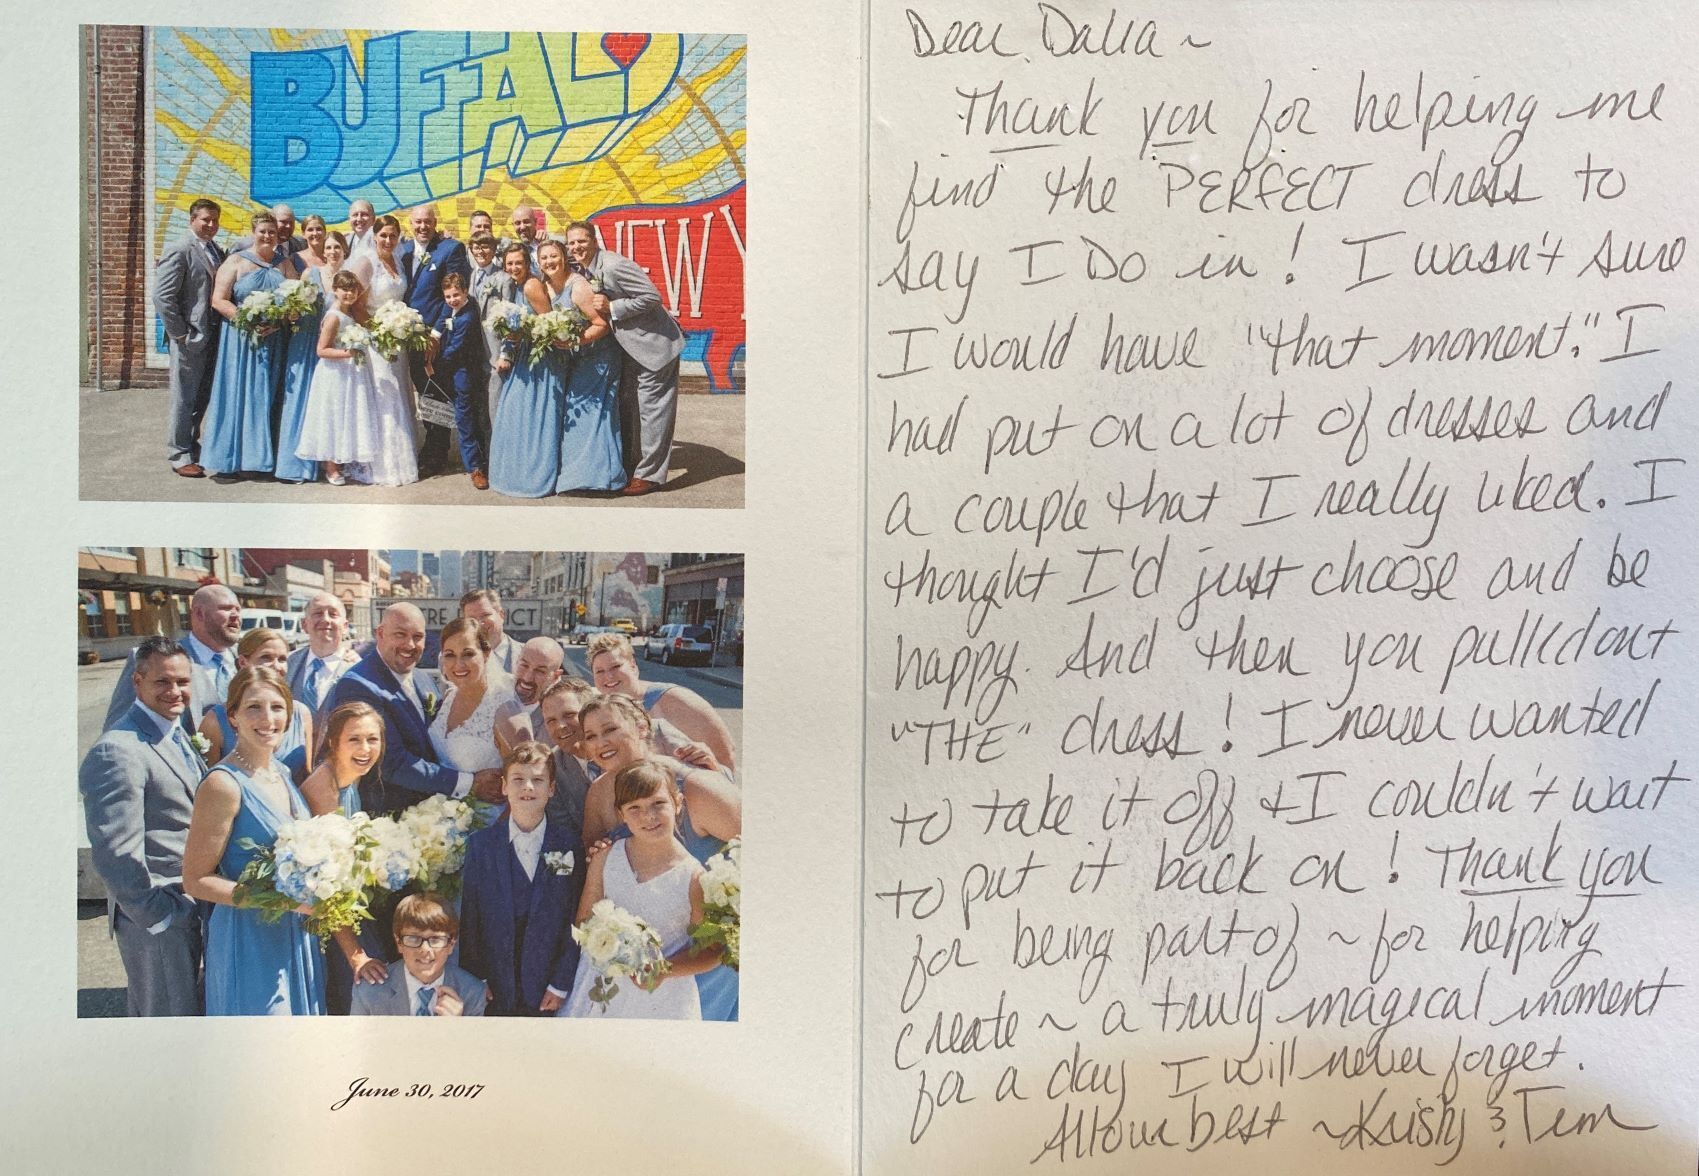 BUFFALO
NEW Y
TRE DISTRICT
June 30, 2017
Dear Dalia ~
Thank you for helping me
find the PERFECT dress to
say I Do in! I wasn't sure
I would have "that moment." I
had put on a lot of dresses and
a couple that I really liked. I
thought I'd just choose and be
happy. And then you pulled out
"THE" dress! I never wanted
to take it off & I couldn't wait
to put it back on! Thank you
for being part of ~ for helping
create ~ a truly magical moment
for a day I will never forget.
All our best ~ Kristy & Tim